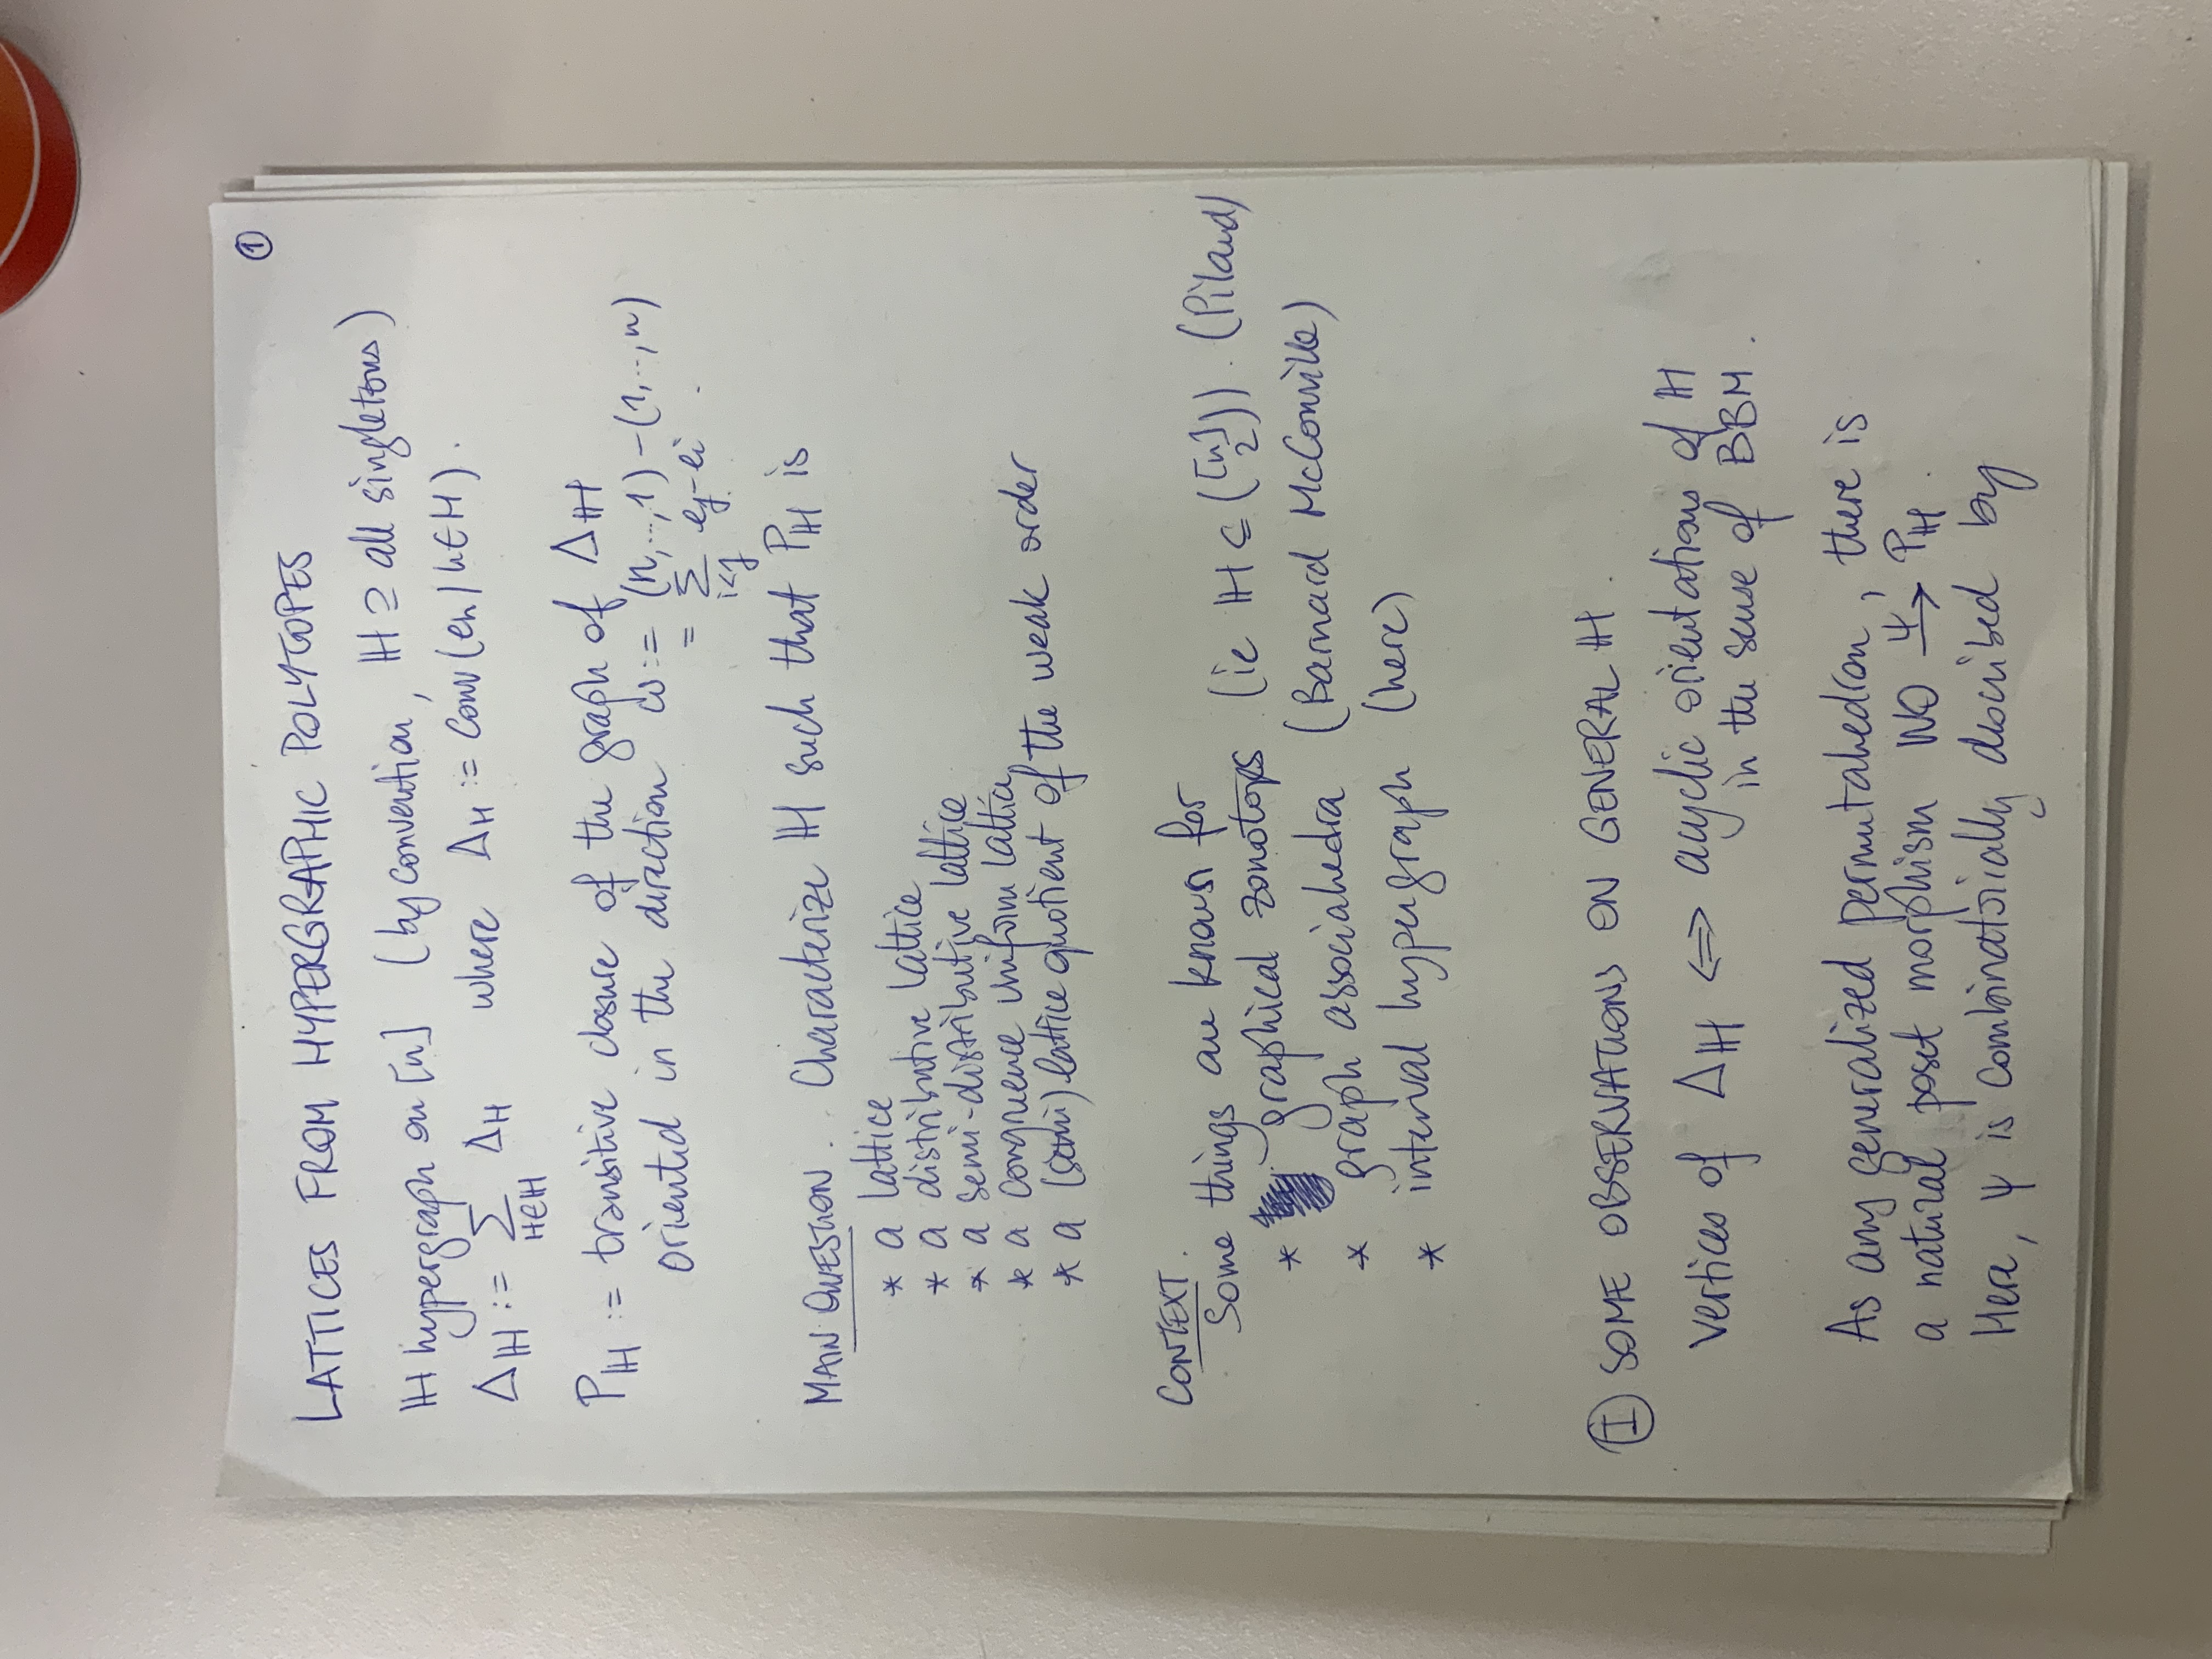 ①
LATTICES FROM HYPERGRAPHIC POLYTOPES
ℍ hypergraph on [n] (by convention, ℍ ⊇ all singletons)
Δℍ := ∑_{H∈ℍ} Δ_H where Δ_H := conv(e_h | h∈H).
P_ℍ := transitive closure of the graph of Δℍ
oriented in the direction ω := (n,...,1) - (1,...,n)
= ∑_{i<j} e_j - e_i.
MAIN QUESTION. Characterize ℍ such that P_ℍ is
* a lattice
* a distributive lattice
* a semi-distributive lattice
* a congruence uniform lattice
* a (semi) lattice quotient of the weak order
CONTEXT.
Some things are known for
* graphical zonotops (ie ℍ ⊆ ([n] 2)). (Pilaud)
* graph associahedra (Barnard McConville)
* interval hypergraph (here)
Ⓘ SOME OBSERVATIONS ON GENERAL ℍ.
vertices of Δℍ ⟺ acyclic orientations of ℍ
in the sense of BBM.
As any generalized permutahedron, there is
a natural poset morphism WO →^Ψ P_ℍ.
Here, Ψ is combinatorially described by